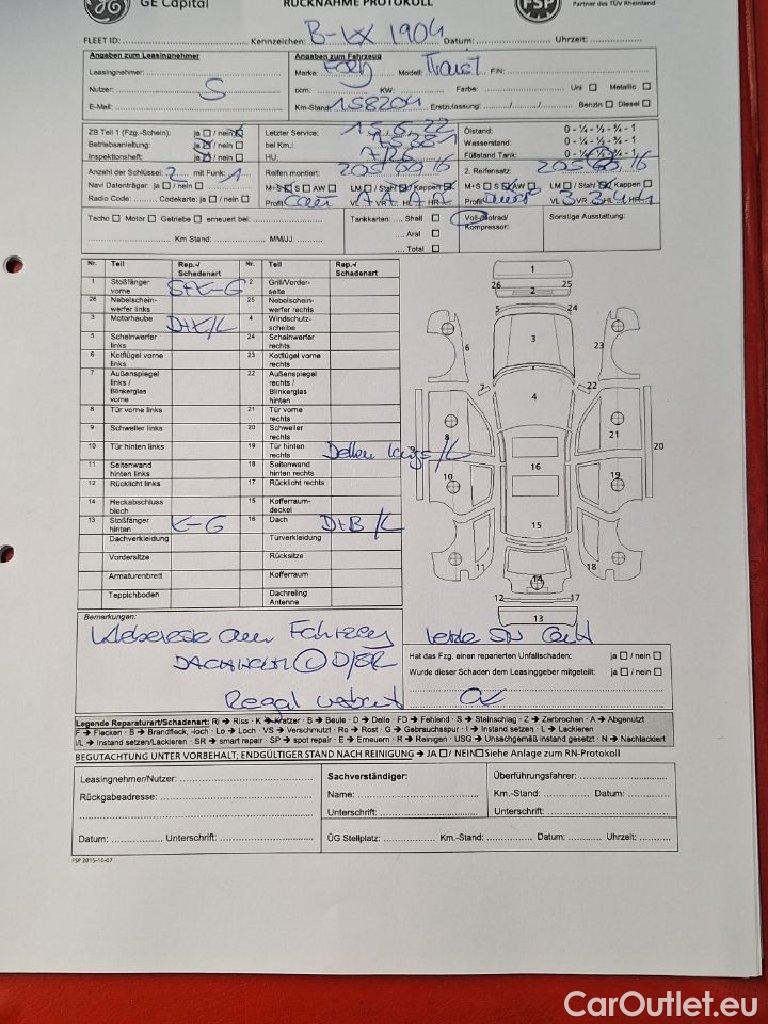 GE Capital
RÜCKNAHME PROTOKOLL
FSP
Partner des TÜV Rheinland
FLEET ID: Kennzeichen: B-VX 1904 Datum: Uhrzeit:
Angaben zum Leasingnehmer
Leasingnehmer:
Nutzer: S
E-Mail:
Angaben zum Fahrzeug
Marke: Ford Modell: FIN:
ccm: KW: Farbe: Uni Metallic
Km-Stand: 158204 Erstzulassung: Benzin Diesel
ZB Teil 1 (Fzg.-Schein): ja / nein
Betriebsanleitung: ja / nein
Inspektionsheft: ja / nein
Letzter Service: 15.6.22
bei Km.:
HU:
Ölstand: 0 - ¼ - ½ - ¾ - 1
Wasserstand: 0 - ¼ - ½ - ¾ - 1
Füllstand Tank: 0 - ¼ - ½ - ¾ - 1
Anzahl der Schlüssel: 2 mit Funk: 1
Navi Datenträger: ja / nein
Radio Code: Codekarte: ja / nein
Reifen montiert: 205 60 16
M+S S AW LM / Stahl Kappen
Profil VL VR HL HR
2. Reifensatz: 205 60 16
M+S S AW LM / Stahl Kappen
Profil VL 3 VR 3 HL 4 HR 4
Tacho Motor Getriebe erneuert bei:
Km Stand: MM/JJ:
Tankkarten: Shell
Aral
Total
Voll-/Notrad/
Kompressor:
Sonstige Ausstattung:
Nr. Teil Rep.-/ Schadenart Nr. Teil Rep.-/ Schadenart
1 Stoßfänger vorne 2 Grill/Vorderseite
26 Nebelscheinwerfer links 25 Nebelscheinwerfer rechts
3 Motorhaube D+K/L 4 Windschutzscheibe
5 Scheinwerfer links 24 Scheinwerfer rechts
6 Kotflügel vorne links 23 Kotflügel vorne rechts
7 Außenspiegel links / Blinkerglas vorne 22 Außenspiegel rechts / Blinkerglas hinten
8 Tür vorne links 21 Tür vorne rechts
9 Schweller links 20 Schweller rechts
10 Tür hinten links 19 Tür hinten rechts Dellen /L
11 Seitenwand hinten links 18 Seitenwand hinten rechts
12 Rücklicht links 17 Rücklicht rechts
14 Heckabschlussblech 15 Kofferraumdeckel
13 Stoßfänger hinten K-G 16 Dach D+B/L
Dachverkleidung Türverkleidung
Vordersitze Rücksitze
Armaturenbrett Kofferraum
Teppichboden Dachreling Antenne
1
26 25
2
5 24
6 3 23
7 22
4
8 21
9 20
10 16 19
15
11 18
14
12 17
13
Bemerkungen:
Klebereste am Fahrzeug
Regal verbaut
Hat das Fzg. einen reparierten Unfallschaden: ja / nein
Wurde dieser Schaden dem Leasinggeber mitgeteilt: ja / nein
Legende Reparaturart/Schadenart: Ri → Riss · K → Kratzer · B → Beule · D → Delle · FD → Fehlend · S → Steinschlag · Z → Zerbrochen · A → Abgenutzt
F → Flecken · B → Brandfleck, -loch · Lo → Loch · VS → Verschmutzt · Ro → Rost · G → Gebrauchsspur · I → Instand setzen · L → Lackieren
I/L → Instand setzen/Lackieren · SR → smart repair · SP → spot repair · E → Erneuern · R → Reinigen · USG → Unsachgemäß instand gesetzt · N → Nachlackiert
BEGUTACHTUNG UNTER VORBEHALT, ENDGÜLTIGER STAND NACH REINIGUNG → JA / NEIN Siehe Anlage zum RN-Protokoll
Leasingnehmer/Nutzer:
Rückgabeadresse:
Datum: Unterschrift:
Sachverständiger:
Name:
Unterschrift:
Überführungsfahrer:
Km.-Stand: Datum:
Unterschrift:
ÜG Stellplatz: Km.-Stand: Datum: Uhrzeit:
FSP 2015-10-07
CarOutlet.eu